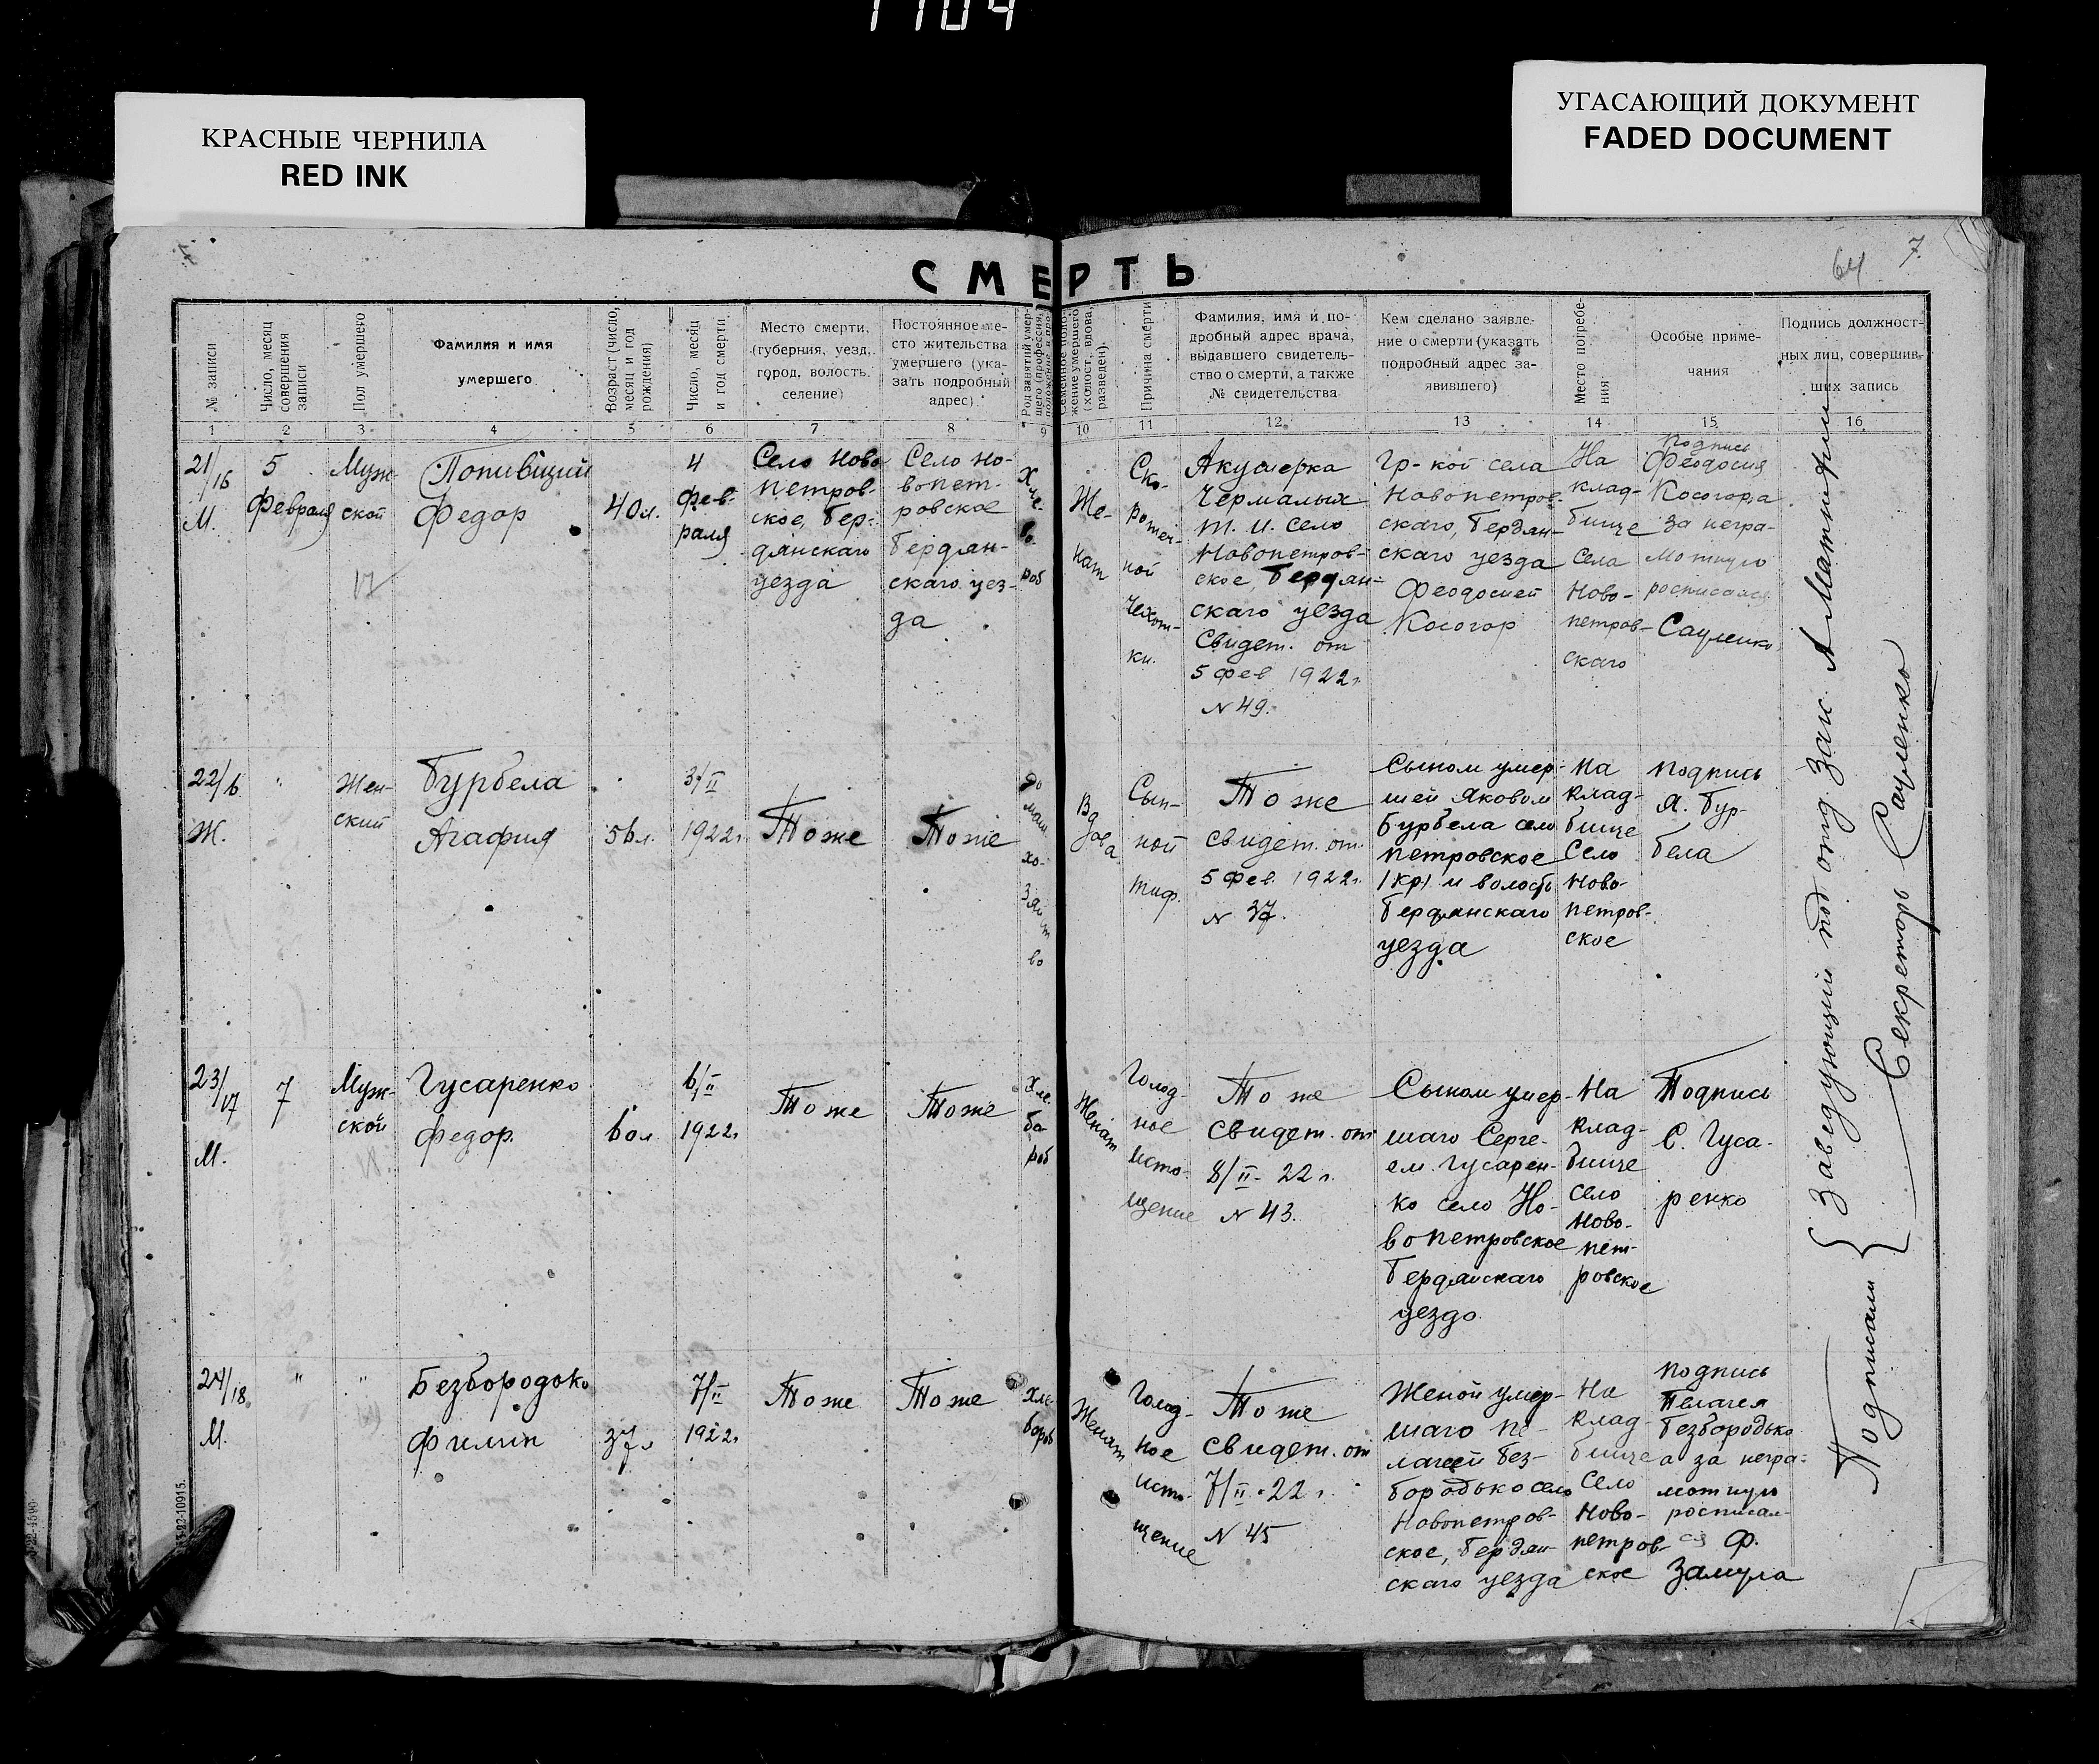 1104
КРАСНЫЕ ЧЕРНИЛА
RED INK
УГАСАЮЩИЙ ДОКУМЕНТ
FADED DOCUMENT
64
7.
СМЕРТЬ
№ записи
Число, месяц
совершения
записи
Пол умершего
Фамилия и имя
умершего
Возраст (число,
месяц и год
рождения)
Число, месяц
и год смерти
Место смерти,
(губерния, уезд,
город, волость,
селение)
Постоянное ме-
сто жительства
умершего (ука-
зать подробный
адрес)
Род занятий умер-
шего профессия,
Семейное поло-
жение умершего
(холост, вдова,
разведен)
Причина смерти
Фамилия, имя и по-
дробный адрес врача,
выдавшего свидетель-
ство о смерти, а также
№ свидетельства
Кем сделано заявле-
ние о смерти (указать
подробный адрес за-
явившего)
Место погребе-
ния
Особые приме-
чания
Подпись должност-
ных лиц, совершив-
ших запись
1 2 3 4 5 6 7 8 9 10 11 12 13 14 15 16
21/16
М.
5
Февраля
Муж-
ской
17
Федор
40 л.
4
Фев-
раля
Село Ново
петров-
ское, Бер-
дянскаго
уезда
Село Но-
вопет-
ровское
Бердян-
скаго уез-
да
роб
Же-
нат
Ско-
ротеч-
ной
Чехот-
ки.
Акушерка
Чермалых
Т. И. село
Новопетров-
ское, Бердян-
скаго уезда
Свидет. от
5 фев 1922 г.
N 49.
Гр-кой села
Новопетров-
скаго, Бердян-
скаго уезда
Феодосией
Косогор
На
клад-
бище
села
Ново-
петров-
скаго
Подпись
Феодосия
Косогор, а
за негра-
мотную
росписался
Сауленко
22/6
Ж.
"
Жен-
ский
Бурбела
Агафия
56 л.
3/II
1922 г.
То же
То же
до
маш
хо-
зяйст
во
Вдова
Сып-
ной
тиф.
То же
Свидет. от
5 Фев. 1922 г.
N 37.
Сыном умер-
шей Яковом
Бурбела село
Петровское
/кр/ и волость
Бердянскаго
уезда
На
клад-
бище
Село
Ново-
петров-
ское
Подпись
Я. Бур-
бела
23/17
М.
7
Муж-
ской
18.
Гусаренко
Федор.
60 л
6/II
1922 г.
То же
То же
Хле-
бо-
роб
Женат
Голод-
ное
исто-
щение
То же
Свидет. от
8/II - 22 г.
N 43.
Сыном умер-
шаго Серге-
ем Гусарен-
ко село Но-
вопетровское
Бердянскаго
уезда.
На
клад-
бище
село
Ново-
пет-
ровское
Подпись
С. Гуса-
ренко
24/18
М.
"
"
Безбородько
Филип
37 л
7/II
1922 г.
То же
То же
хле-
бороб
Женат
Голод-
ное
исто-
щение
То же
Свидет. от
7/II - 22 г.
N 45
Женой умер-
шаго Пе-
лагеей Без-
бородько село
Новопетров-
ское, Бердян-
скаго уезда
На
клад-
бище
Село
Ново-
петров-
ское
Подпись
Пелагея
Безбородько
а за негра-
мотную
росписал-
ся Ф.
Замула
Подписали { Заведующий под отд. Закс
Секреторь Сауленко